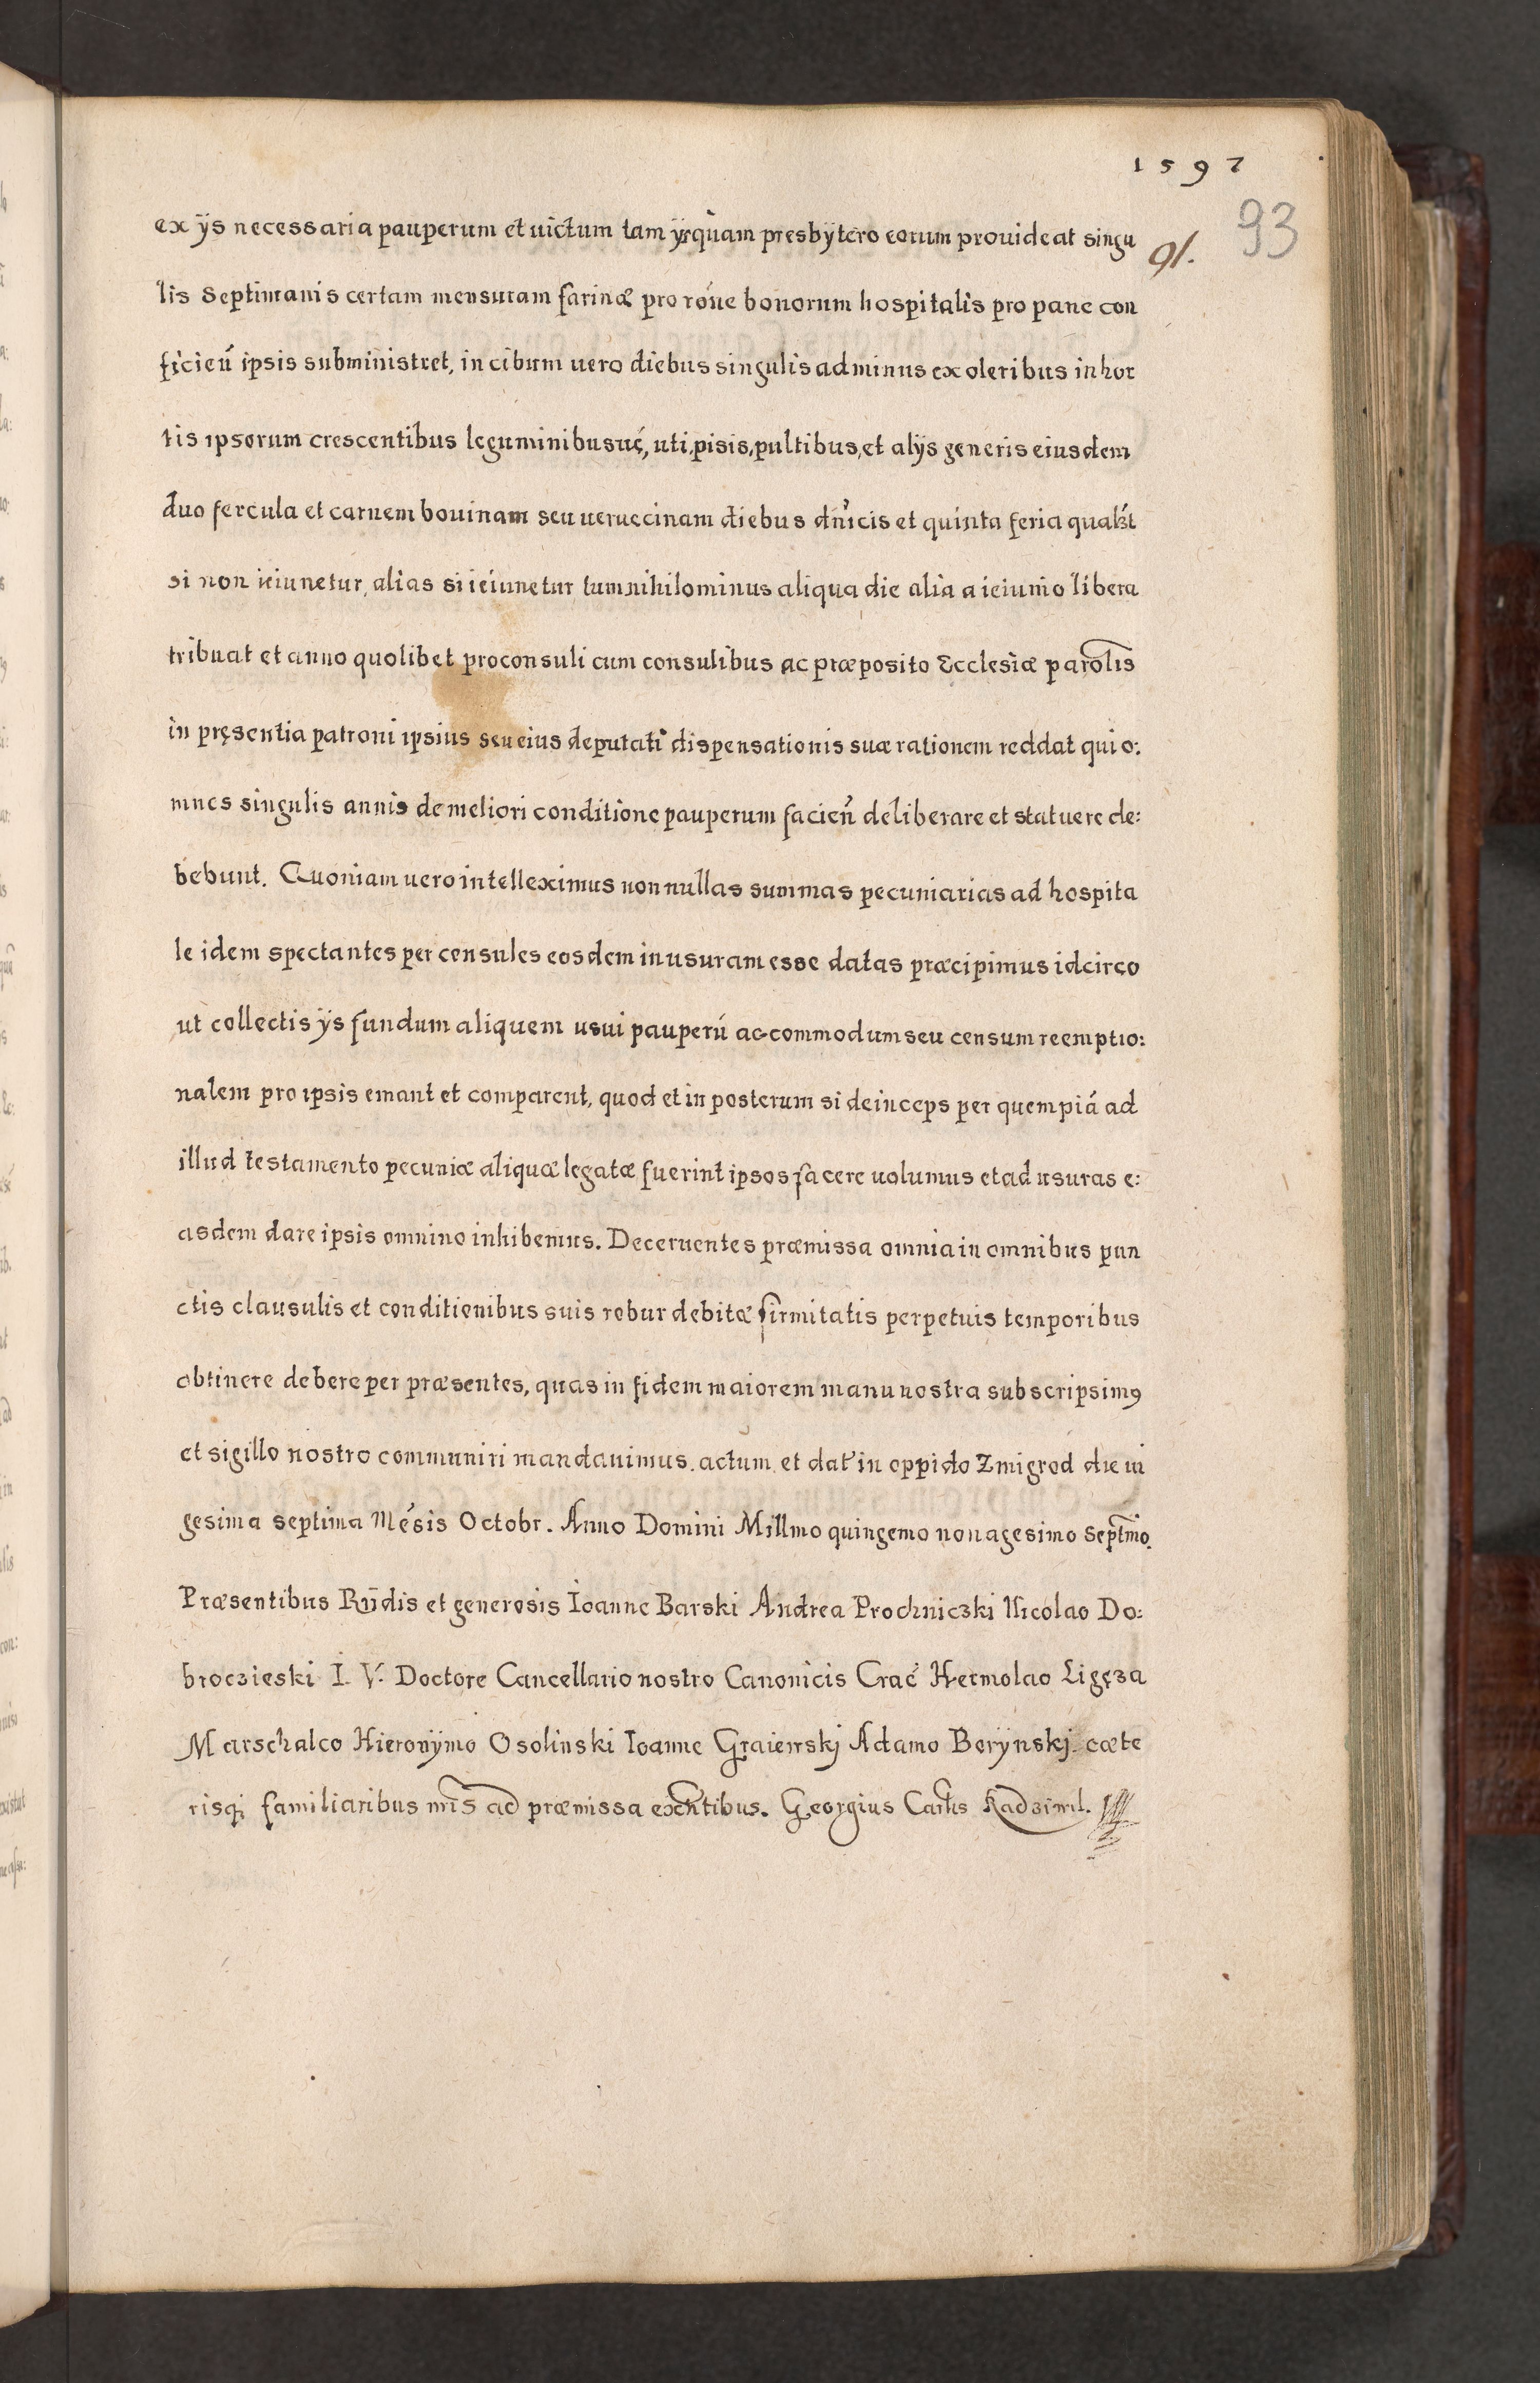 1597
93
91.
ex ÿs necessaria pauperum et uictum tam ÿs quàm presbÿtero eorum prouideat singu
lis Septimanis certam mensuram farinæ pro rõne bonorum hospitalis pro pane con
ficieñ ipsis subministret, in cibum uero diebus singulis ad minus ex oleribus in hor
tis ipsorum crescentibus leguminibusuę, uti, pisis, pultibus, et alÿs generis eiusdem
duo fercula et carnem bouinam seu ueruecinam diebus dñicis et quinta feria
si non ieiunetur, alias si ieiunetur tum nihilominus aliqua die alia a ieiunio libera
tribuat et anno quolibet proconsuli cum consulibus ac præposito Ecclesiæ parolis
in pręsentia patroni ipsius seu eius deputati dispensationis suæ rationem reddat qui o:
mnes singulis annis de meliori conditione pauperum facieñ deliberare et statuere de:
bebunt. Quoniam uero intelleximus non nullas summas pecuniarias ad hospita
le idem spectantes per consules eosdem in usuram esse datas præcipimus idcirco
ut collectis ÿs fundum aliquem usui pauperũ accommodum seu censum reemptio:
nalem pro ipsis emant et comparent, quod et in posterum si deinceps per quempiã ad
illud testamento pecuniæ aliquæ legatæ fuerint ipsos facere uolumus et ad usuras e:
asdem dare ipsis omnino inhibemus. Decernentes præmissa omnia in omnibus pun
ctis clausulis et conditionibus suis robur debitæ firmitatis perpetuis temporibus
obtinere debere per præsentes, quas in fidem maiorem manu nostra subscripsimꝰ
et sigillo nostro communiri mandauimus. actum et dat in oppido Zmigrod die ui
gesima septima Mẽsis Octobr. Anno Domini Millmo quingemo nonagesimo Septimo.
Præsentibus Rñdis et generosis Ioanne Barski Andrea Prochniczki Nicolao Do:
broczieski I. V. Doctore Cancellario nostro Canonicis Crac̃ Hermolao Ligęza
Marschalco Hieronÿmo Osolinski Ioanne Graiewskj Adamo Borÿnskj cæte
risq; familiaribus nris ad præmissa exñtibus. Georgius Carlis Radziwil.